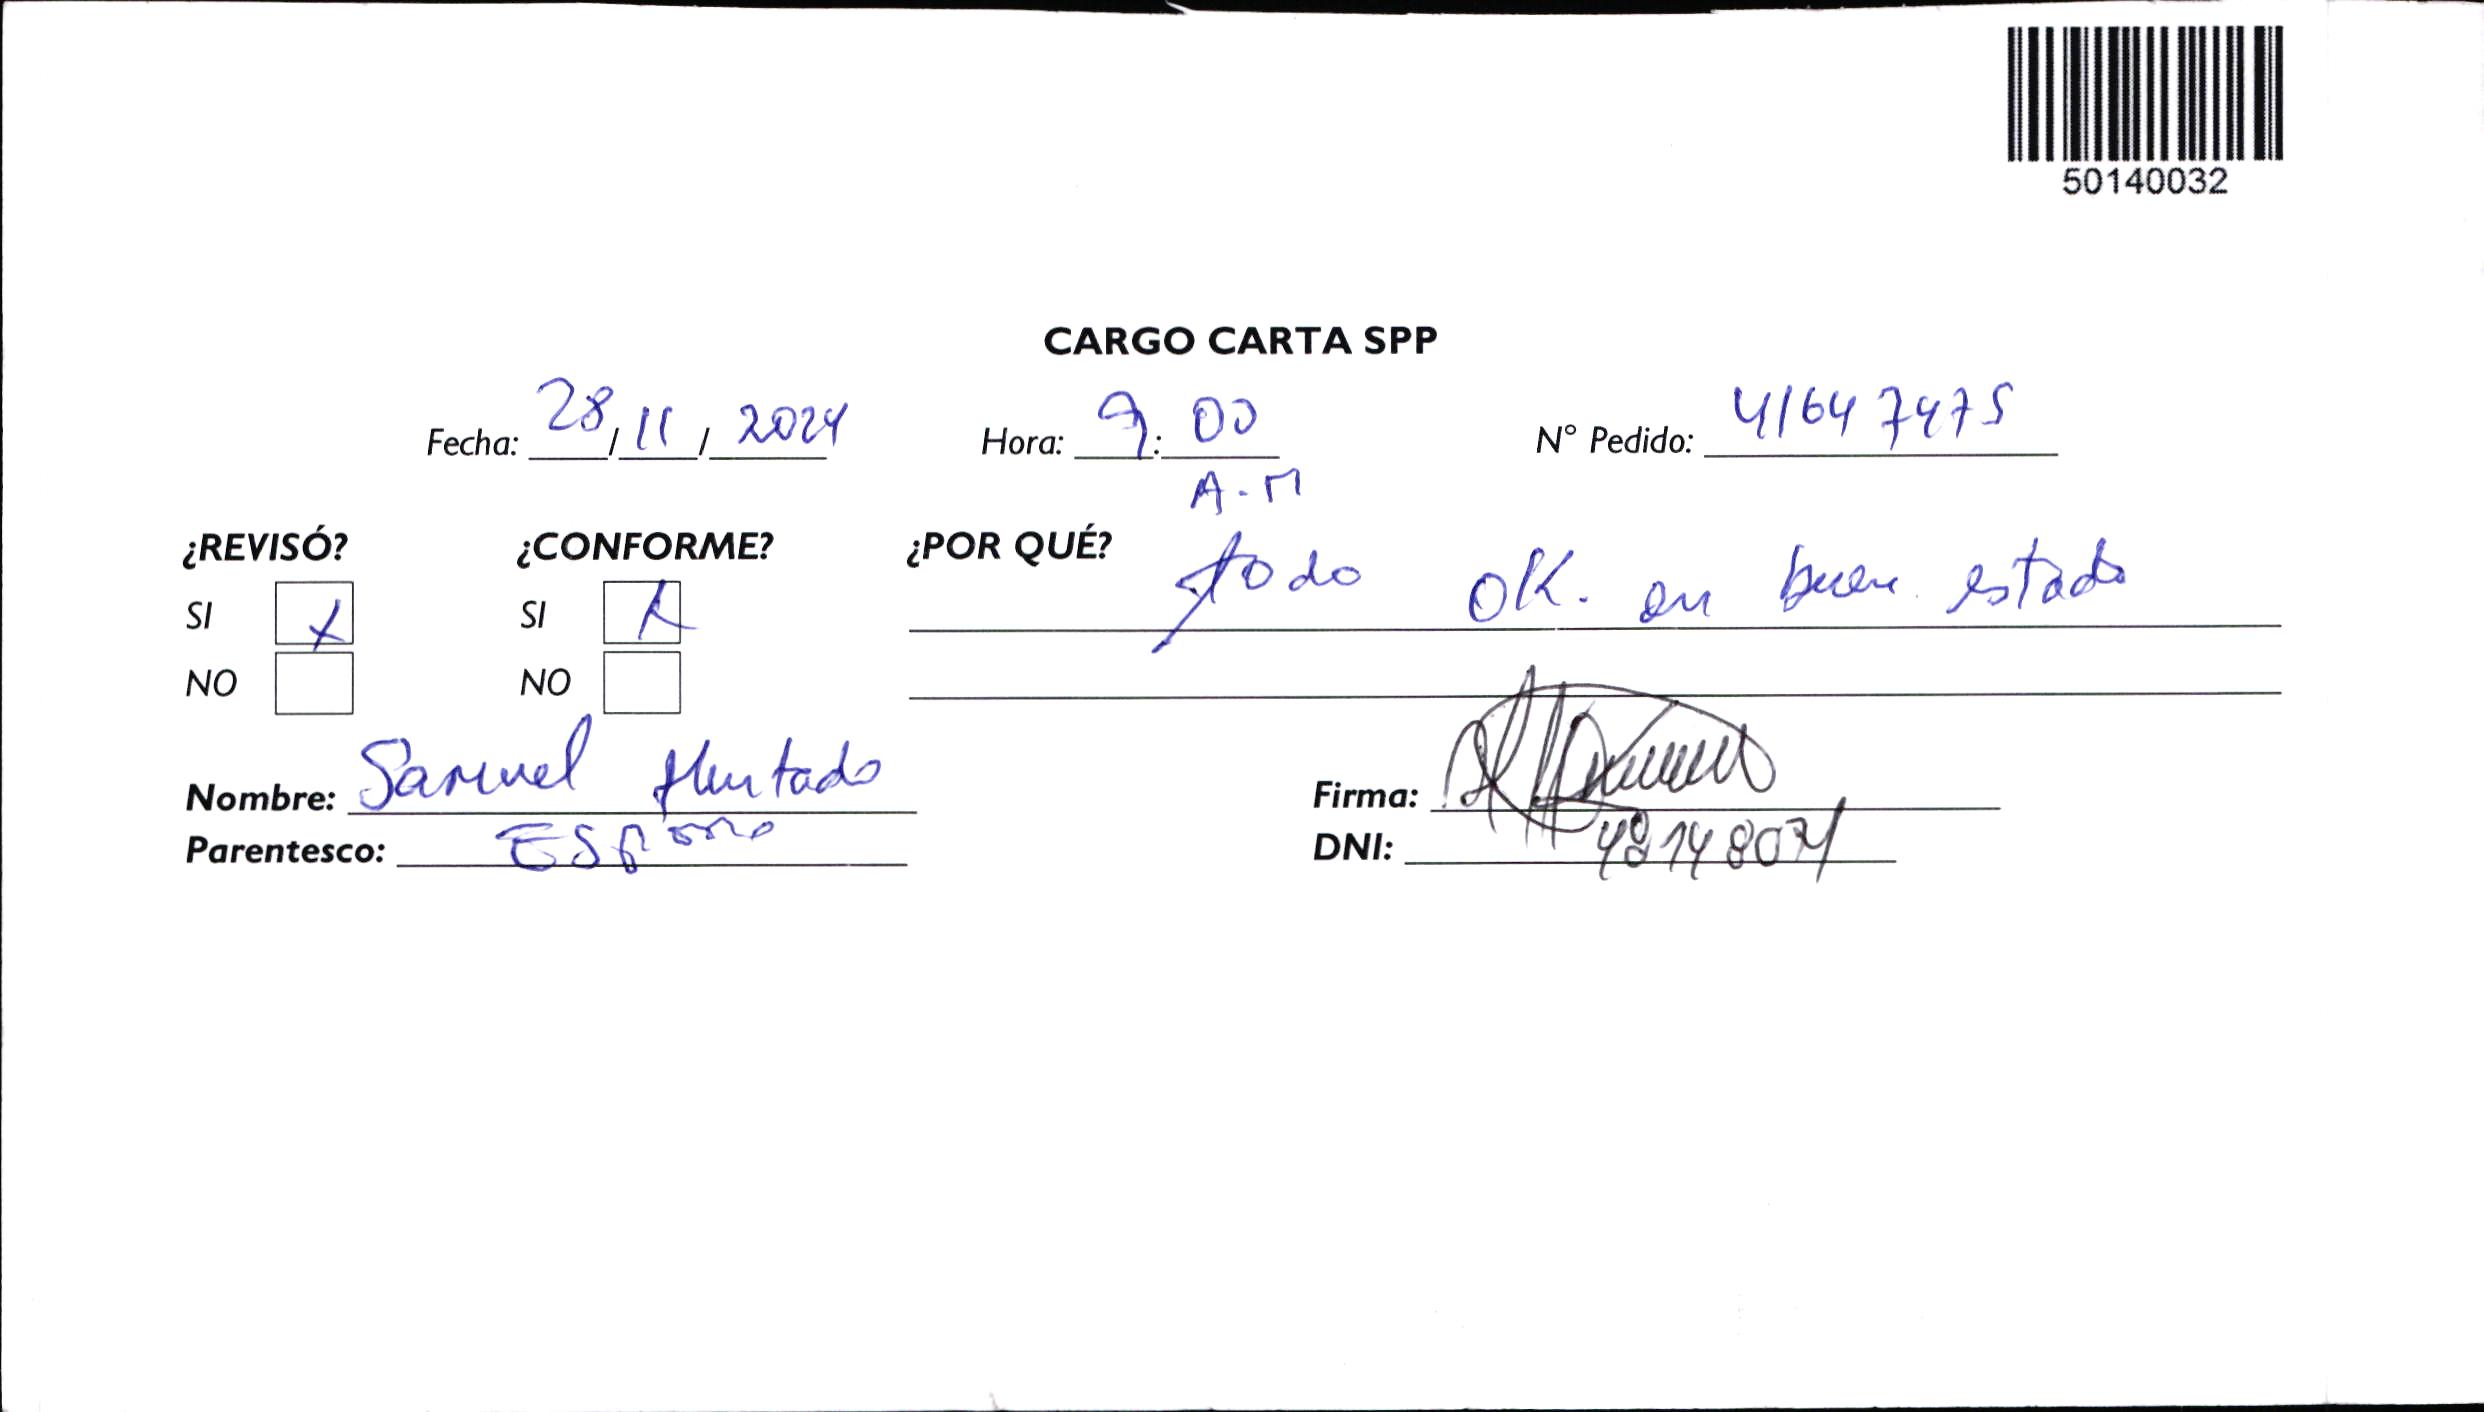 50140032
CARGO CARTA SPP
Fecha: 28/11/2024 Hora: 9:00 N° Pedido: 41647475
A.M
¿REVISÓ? ¿CONFORME? ¿POR QUÉ? todo OK. en buen estado
SI X SI X
NO NO
Nombre: Samuel Hurtado Firma:
Parentesco: ESPOSO DNI: